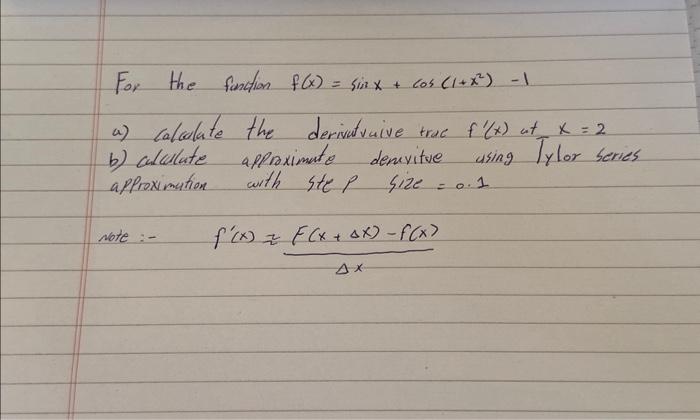 For the function f(x) = sin x + cos (1+x²) -1
a) calculate the derivatvaive true f'(x) at x = 2
b) calculate approximate deravitve using Tylor series
approximation with step size = 0.1
Note :- f'(x) ≈ F(x + Δx) - f(x)
Δx